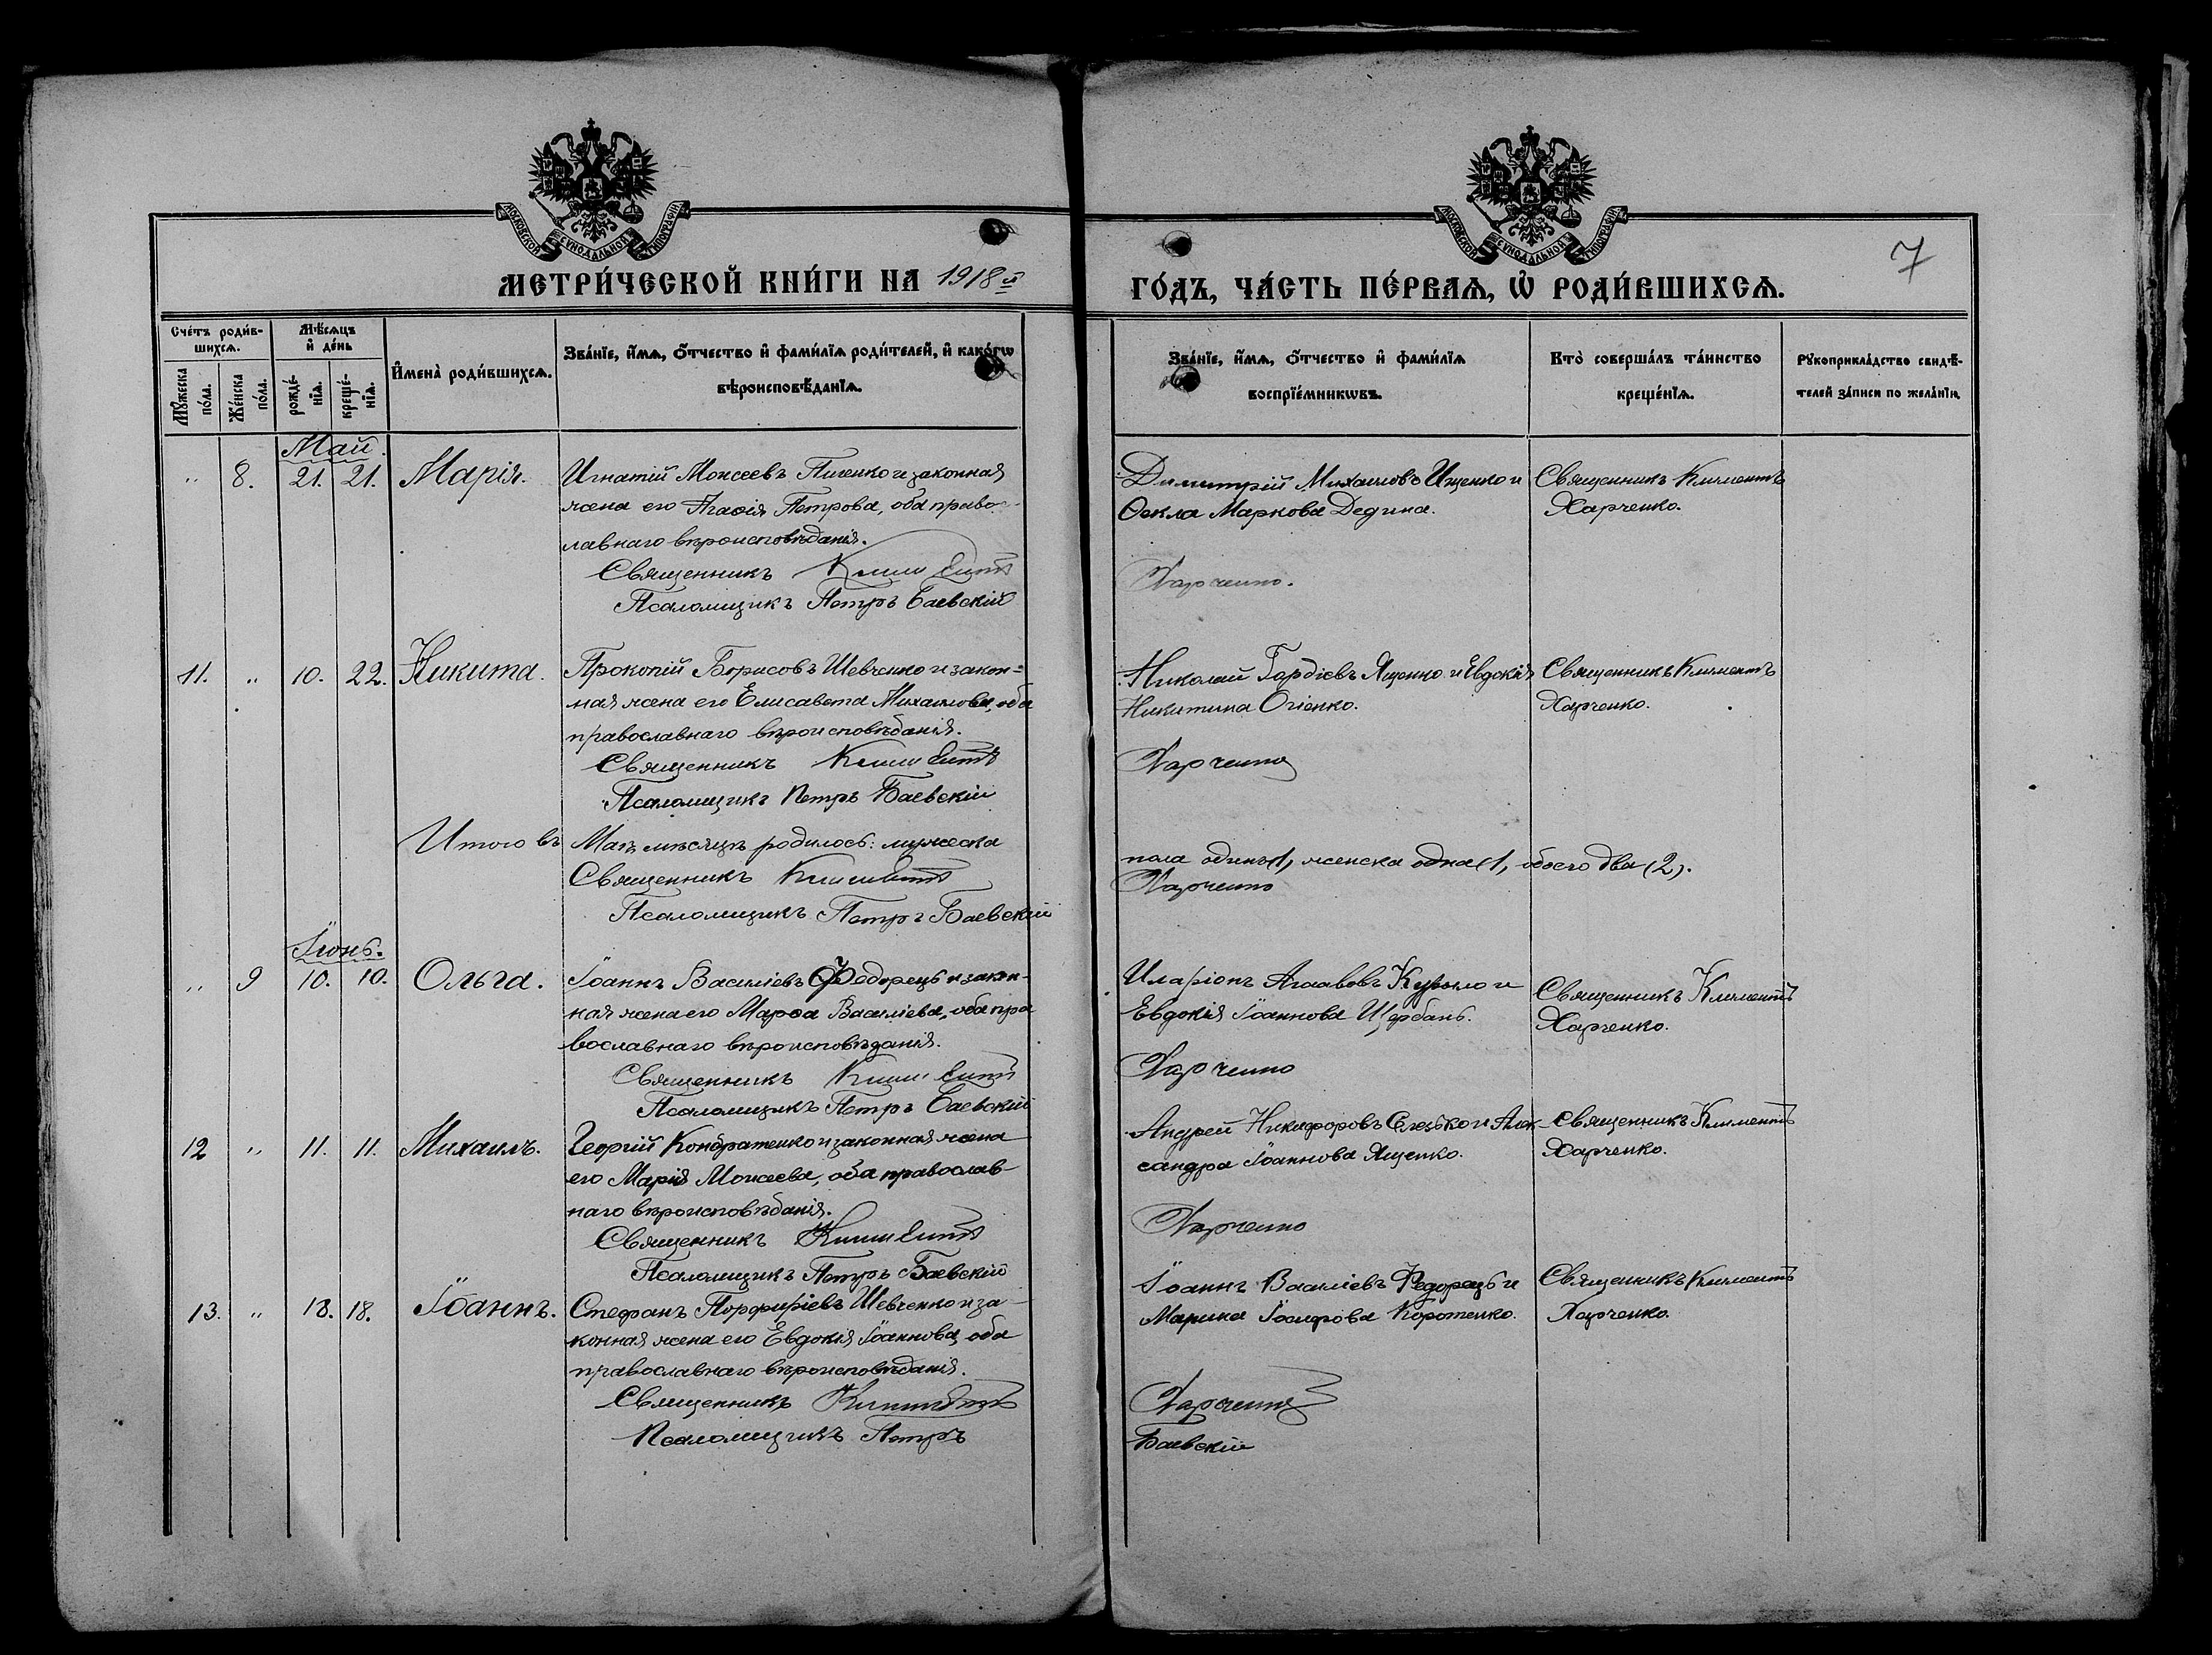 МОСКОВСКОЙ СѴНОДАЛЬНОЙ ТИПОГРАФІИ
МОСКОВСКОЙ СѴНОДАЛЬНОЙ ТИПОГРАФІИ
7
МЕТРИ́ЧЕСКОЙ КНИ́ГИ НА 1918й
ГО́ДЪ, ЧА́СТЬ ПЕ́РВАѦ, Ѽ РОДИ́ВШИХСѦ.
Сче́тъ роди́в-
шихсѧ.
Мѣ́сѧцъ
и҆ де́нь
Мꙋ́жеска
по́ла.
Же́нска
по́ла.
рожде́-
нїѧ.
креще́-
нїѧ.
И҆мена̀ роди́вшихсѧ.
Зва́нїе, и҆́мѧ, ѻ҆́тчество и҆ фами́лїѧ роди́телей, и҆ како́гѡ
вѣроисповѣ́данїѧ.
Зва́нїе, и҆́мѧ, ѻ҆́тчество и҆ фами́лїѧ
воспрїе́мникѡвъ.
Кто̀ соверша́лъ та́инство
креще́нїѧ.
Рꙋкоприкла́дство свидѣ́-
телей за́писи по жела́нїю.
Май.
" 8. 21. 21. Марія. Игнатій Моисеевъ Пиченко и законная
жена его Агаѳія Петрова, оба право-
лавнаго вѣроисповѣданія.
Священникъ Климентъ
Псаломщикъ Петръ Баевскій
Димитрій Михаиловъ Ищенко и
Ѳекла Маркова Дедина.
Харченко.
Священникъ Климентъ
Харченко.
11. " 10. 22. Никита. Прокопій Борисовъ Шевченко и закон=
ная жена его Елисавета Михаилова, оба
православнаго вѣроисповѣданія.
Священникъ Климентъ
Псаломщикъ Петръ Баевскій
Николай Гордіевъ Ященко и Евдокія
Никитина Огіенко.
Харченко
Священникъ Климентъ
Харченко.
Итого въ Маѣ мѣсяцѣ родилось: мужеска
пола одинъ (1, женска одна (1, обоего два (2).
Священникъ Климентъ
Харченко
Псаломщикъ Петръ Баевскій
Іюнь.
" 9 10. 10. Ольга. Іоаннъ Василіевъ Федорецъ и закон-
ная жена его Марѳа Василіева, оба пра
вославнаго вѣроисповѣданія.
Священникъ Климентъ
Псаломщикъ Петръ Баевскій
Иларіонъ Агаавовъ и
Евдокія Іоаннова Щербань.
Харченко
Священникъ Климентъ
Харченко.
12 " 11. 11. Михаилъ. Георгій Кондратенко и законная жена
его Марія Моисеева, оба православ-
наго вѣроисповѣданія.
Священникъ Климентъ
Псаломщикъ Петръ Баевскій
Андрей Никифоровъ и Алек-
сандра Іоаннова Ященко.
Харченко
Священникъ Климентъ
Харченко.
13. " 18. 18. Іоаннъ. Стефанъ Порфиріевъ Шевченко и за-
конная жена его Евдокія Іоаннова, оба
православнаго вѣроисповѣданія.
Священникъ Климентъ
Псаломщикъ Петръ
Іоаннъ Василіевъ Федорецъ и
Марина Іосифова Коротенко.
Харченко
Баевскій
Священникъ Климентъ
Харченко.